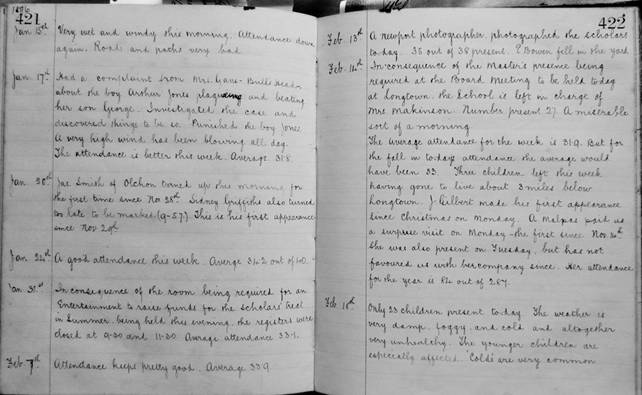 1896
421
Jan 13th Very wet and windy this morning. Attendance down
again. Road and paths very bad.
Jan. 17th Had a complaint from Mrs. Gaus- Bulls Head,
about the boy Arthur Jones plaguing and beating
her son George. Investigated the case and
discovered things to be so. Punished the boy Jones.
A very high wind has been blowing all day.
The attendance is better this week. Average 31.8.
Jan. 20th Jas Smith of Olchon turned up this morning for
the first time since Nov 28th. Sidney Griffiths also turned
too late to be marked (9-57). This is his first appearance
since Nov 20th.
Jan 24th A good attendance this week. Averge 34.2 out of 40.
Jan. 31st In consequence of the room being required for an
Entertainment to raise funds for the scholars treat
in Summer, being held this evening, the registers were
closed at 9-30 and 11-30. Average attendance 33.1.
Feb. 7th Attendance keeps pretty good. Average 33.9.
422
Feb. 13th A Newport photographer, photographed the scholars
today. 35 out of 38 present. P. Bowen fell in the yard.
Feb. 14th In consequence of the Master's presence being
required at the Board Meeting to be held today
at Longtown, the School is left in charge of
Mrs. Makinson. Number present 27. A miserable
sort of a morning.
The average attendance for the week is 31.9. But for
the fall in todays attendance the average would
have been 33. Three children left this week
having gone to live about 3 miles below
Longtown. J. Gilbert made his first appearance
since Christmas on Monday. A Malpas paid us
a surprise visit on Monday - the first since Nov.
She was also present on Tuesday, but has not
favoured us with her company since. Her attendance
for the year is 84 out of 287.
Feb. Only 23 children present today. The weather is
very damp, foggy, and cold and altogether
very unhealthy. The younger children are
especially affected. Colds are very common